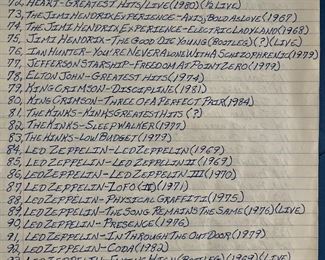 72. HEART-GREATEST HITS/LIVE (1980) (½ LIVE)
73. THE JIMI HENDRIX EXPERIENCE-AXIS; BOLD AS LOVE (1967)
74. THE JIMI HENDRIX EXPERIENCE-ELECTRIC LADYLAND (1968)
75. JIMI HENDRIX-THE GOOD DIE YOUNG (BOOTLEG) (?) (LIVE)
76. IAN HUNTER-YOU'RE NEVER ALONE WITH A SCHIZOPHRENIC (1979)
77. JEFFERSON STARSHIP-FREEDOM AT POINT ZERO (1979)
78. ELTON JOHN-GREATEST HITS (1974)
79. KING CRIMSON-DISCIPLINE (1981)
80. KING CRIMSON-THREE OF A PERFECT PAIR (1984)
81. THE KINKS-KINKS GREATEST HITS (?)
82. THE KINKS-SLEEPWALKER (1977)
83. THE KINKS-LOW BUDGET (1979)
84. LED ZEPPELIN-LED ZEPPELIN (1969)
85. LED ZEPPELIN-LED ZEPPELIN II (1969)
86. LED ZEPPELIN-LED ZEPPELIN III (1970)
87. LED ZEPPELIN-ZOFO (II) (1971)
88. LED ZEPPELIN-PHYSICAL GRAFFITI (1975)
89. LED ZEPPELIN-THE SONG REMAINS THE SAME (1976) (LIVE)
90. LED ZEPPELIN-PRESENCE (1976)
91. LED ZEPPELIN-IN THROUGH THE OUT DOOR (1979)
92. LED ZEPPELIN-CODA (1982)
93. LED ZEPPELIN (BOOTLEG) (1969) (LIVE)